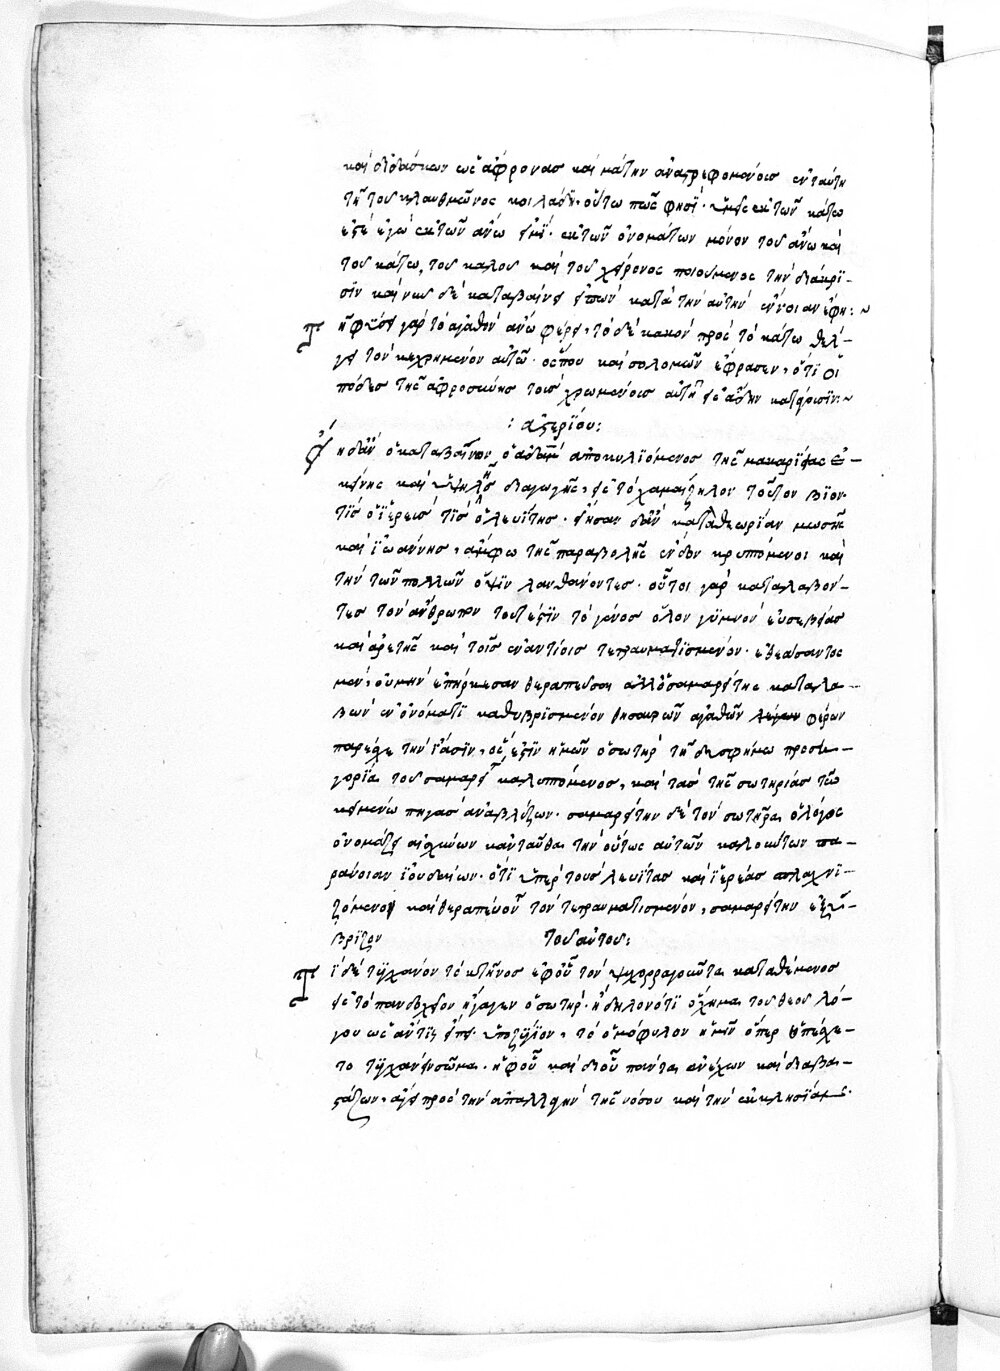 καὶ διδάσκων ὡς ἄφρονας καὶ μάτην ἀναστρεφομένοις ἐν ταύτῃ
τῇ τοῦ κλαυθμῶνος κοιλάδι· οὕτω πως φησί· ὑμεῖς ἐκ τῶν κάτω
ἐστέ ἐγὼ ἐκ τῶν ἄνω εἰμί· ἐκ τῶν ὀνομάτων μόνον τοῦ ἄνω καὶ
τοῦ κάτω, τοῦ καλοῦ καὶ τοῦ χείρονος ποιούμενος τὴν διάκρι-
σιν καὶ νῦν δὲ καταβαίνει εἰπὼν κατὰ τὴν αὐτὴν ἔννοιαν ἔφη:~
Πέφυκε γὰρ τὸ ἀγαθὸν ἄνω φέρειν, τὸ δὲ κακὸν πρὸς τὸ κάτω θέλ-
γει τὸν κεχρημένον αὐτῷ· ὥς που καὶ σολομῶν ἔφρασεν, ὅτι οἱ
πόδες τῆς ἀφροσύνης τοὺς χρωμένους αὐτῇ εἰς ᾅδην κατάγουσιν:~
: ἀστερίου:
ην ὁ καταβαίνων ὁ ἀδὰμ ἀποκυλιόμενος τῆς μακαρίας ἐ-
κείνης καὶ ὑψηλῆς διαγωγῆς, εἰς τὸ χαμαίζηλον τοῦτον βίον·
τίς ὁ ἱερεὺς τίς ὁ λευίτης· ἦσαν κατὰ θεωρίαν μωσῆς
καὶ ἰωάννης, ἄμφω τῆς παραβολῆς ἔνδον κρυπτόμενοι καὶ
τὴν τῶν πολλῶν ὄψιν λανθάνοντες· οὗτοι γὰρ καταλαβόν-
τες τὸν ἄνθρωπον τουτέστιν τὸ γένος ὅλον γυμνὸν εὐσεβείας
καὶ ἀρετῆς καὶ τοῖς ἐναντίοις τετραυματισμένον· ἐθεάσαντο
μέν, οὐ μὴν ἐπήρκεσαν θεραπεῦσαι ἀλλ' ὁ σαμαρείτης καταλα-
βὼν ἐν ὀνόματι καθυβρισμένον θησαυρῶν ἀγαθῶν φέρων
παρέσχε τὴν ἴασιν, ὅς ἐστιν ἡμῶν ὁ σωτὴρ τῇ δυσφήμῳ προση-
γορίᾳ τοῦ σαμαρείτου καλυπτόμενος, καὶ τὰς τῆς σωτηρίας τῷ
κειμένῳ πηγὰς ἀναβλύζων· σαμαρείτην δὲ τὸν σωτῆρα ὁ λόγος
ὀνομάζει αἰσχύνων κἀνταῦθα τὴν οὕτως αὐτὸν καλούντων πα-
ράνοιαν ἰουδαίων· ὅτι ὑπὲρ τοὺς λευίτας καὶ ἱερέας σπλαχνι-
ζόμενον καὶ θεραπεύοντα τὸν τετραυματισμένον, σαμαρείτην ἐξύ-
βριζον τοῦ αὐτοῦ:
Τί δὲ τυγχάνον τὸ κτῆνος ἐφ' οὗ τὸν ψυχορραγοῦντα καταθέμενος
εἰς τὸ πανδοχεῖον ἤγαγεν ὁ σωτήρ· ἢ δηλονότι ὄχημα τοῦ θεοῦ λό-
γου ὡς ἄν τις εἴποι ὑποζύγιον, τὸ ὁμόφυλον ἡμῖν ὅπερ ὑπέσχε-
το τυγχάνει σῶμα· ἐφ' οὗ καὶ δι' οὗ πάντα ἀνέχων καὶ διαβα-
στάζων, ἄγει πρὸς τὴν ἀπαλλαγὴν τῆς νόσου καὶ τὴν ἐκκλησίαν·